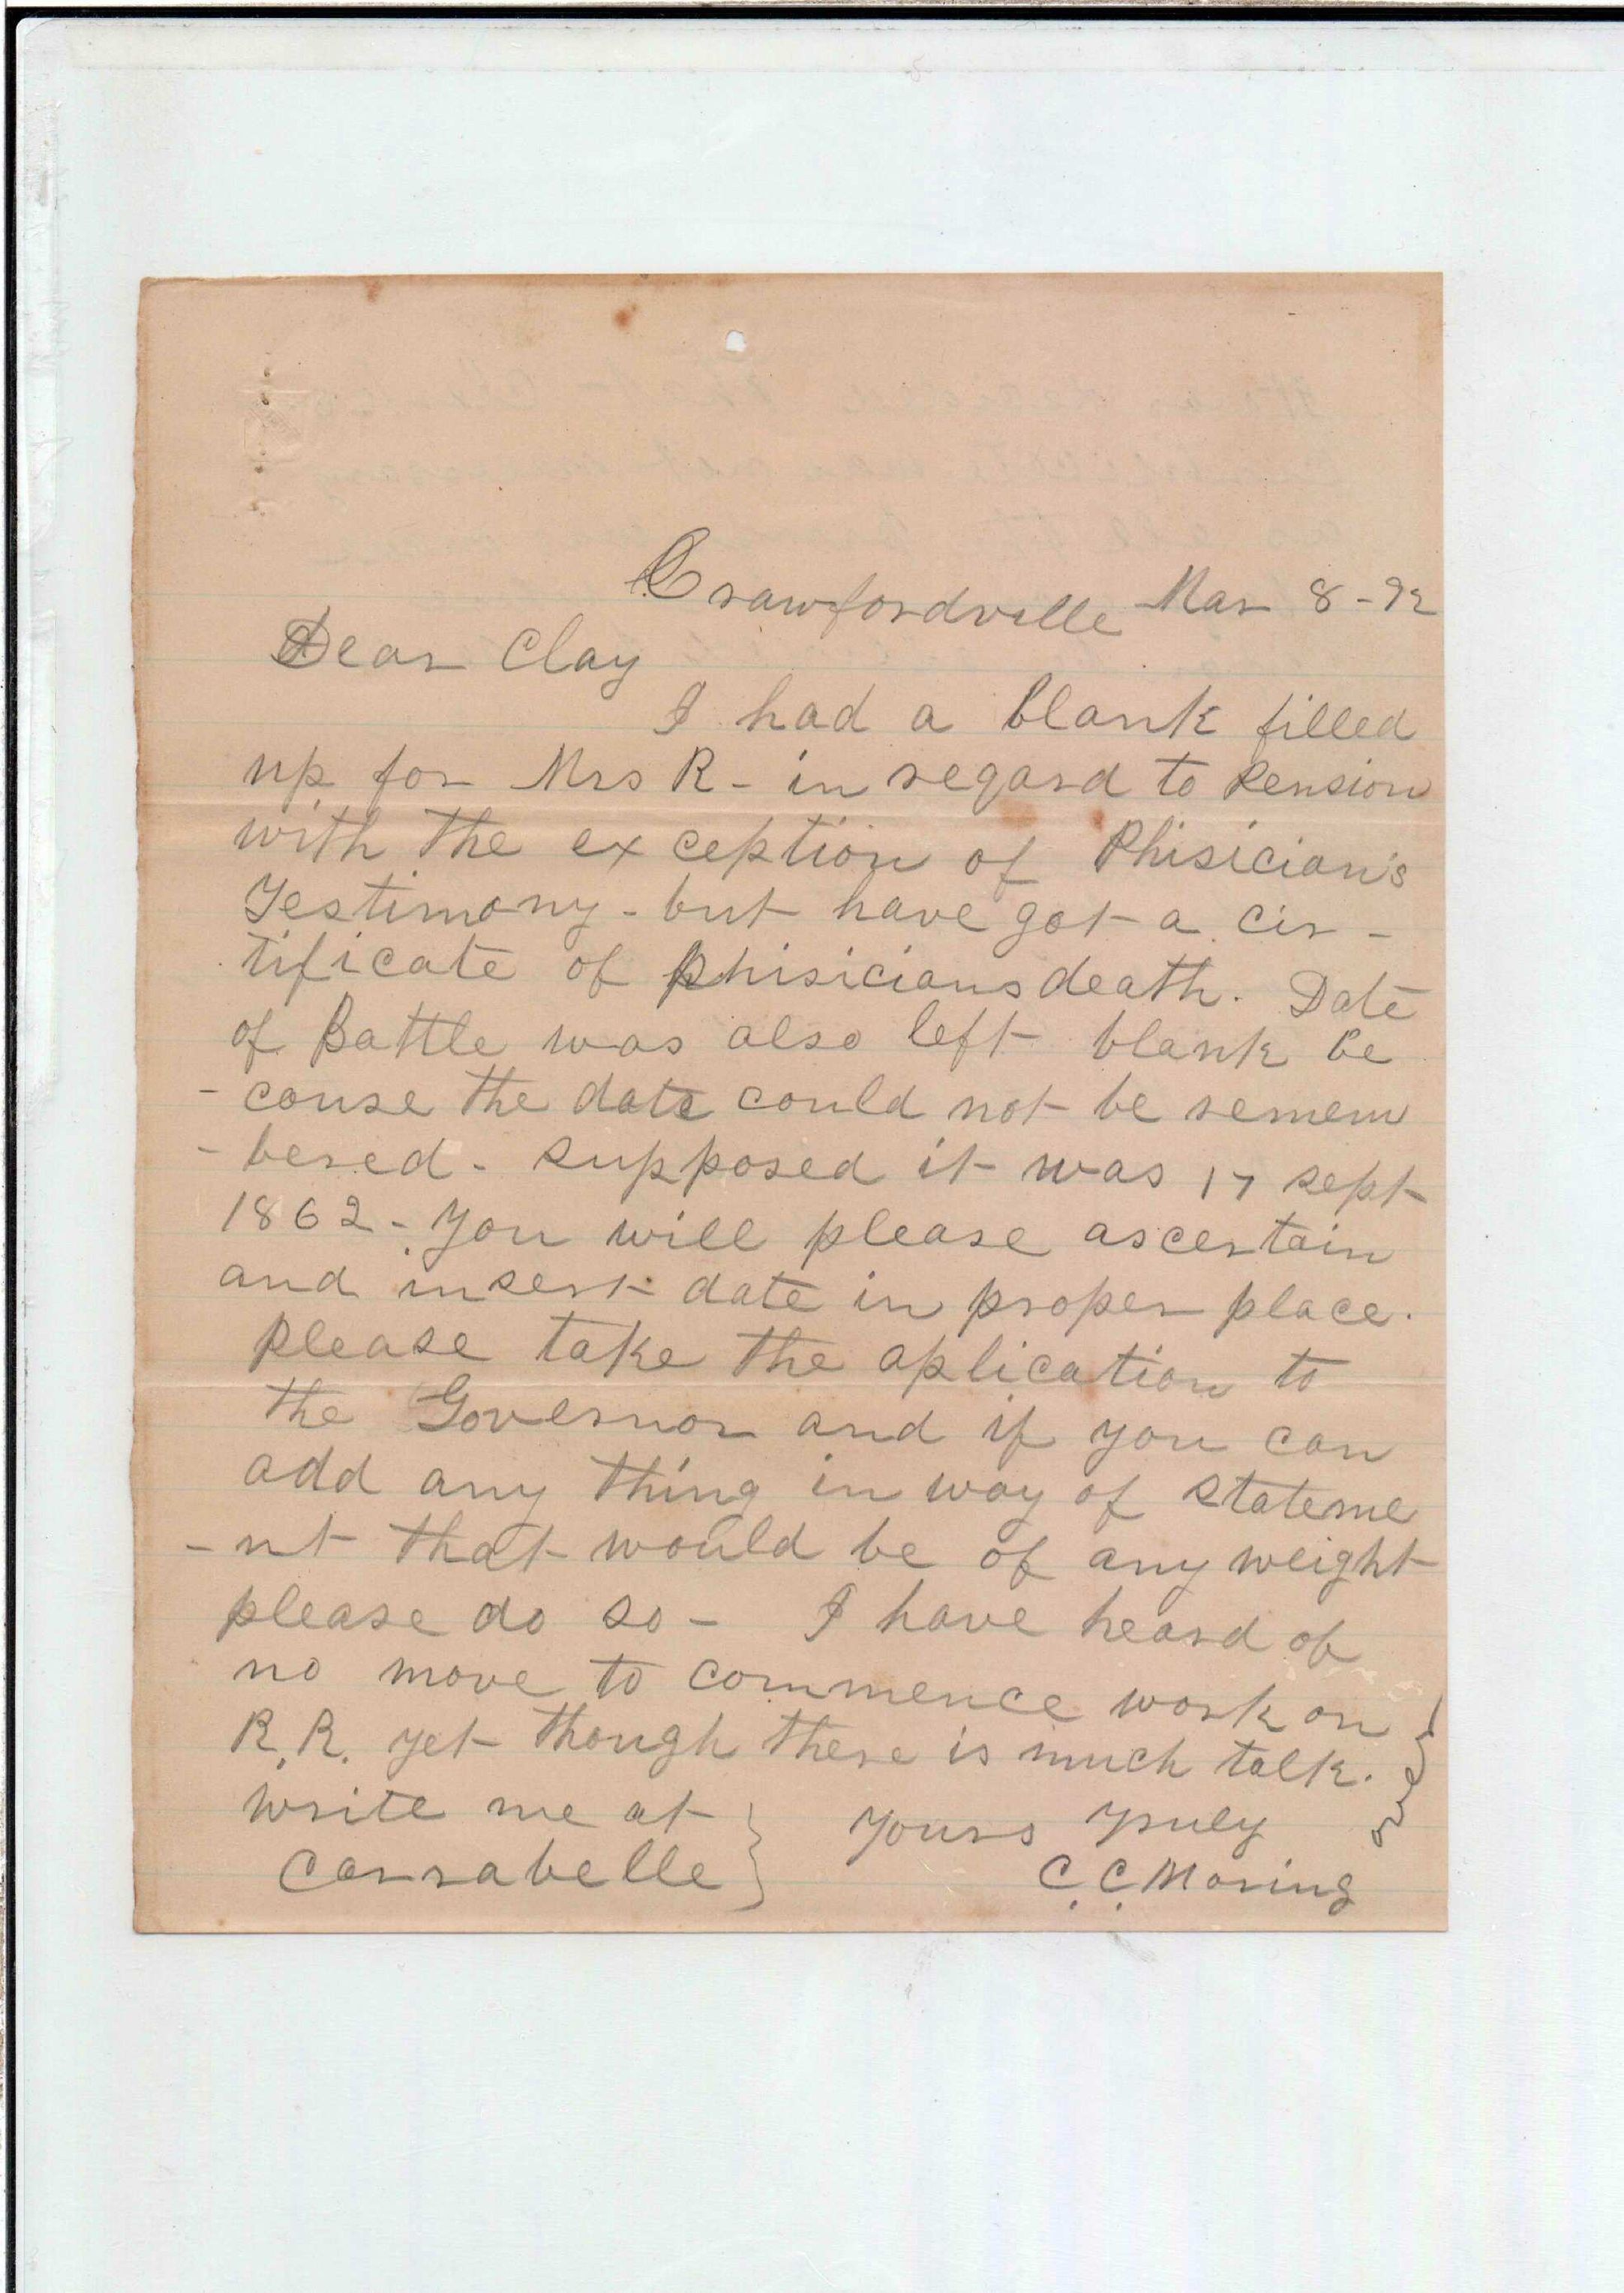 Crawfordville Mar 8-92
Dear Clay
I had a blank filled
up for Mrs R- in regard to Pension
with the exception of Phisician's
Testimony - but have got a cir-
tificate of Phisicians death. Date
of Battle was also left blank be
-cause the date could not be remem
-bered - supposed it was 17 sept
1862 - you will please ascertain
and insert date in proper place.
Please take the aplication to
the Governor and if you can
add any thing in way of stateme
-nt that would be of any weight
please do so - I have heard of
no move to commence work on
R.R. yet though there is much talk.
write me at
Carrabelle
Yours Truly
C. C. Moring